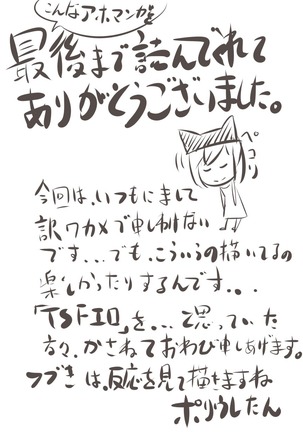 こんなアホマンガを
最後まで読んでくれて
ありがとうございました。
ペコリ
今回は、いつにもまして
訳ワカメで申しわけない
です...でも、こういうの描いてるの
楽しかったりするんです..
「TSFIO」を...と思っていた
方々、かさねておわび申しあげます。
つづきは、反応を見て描きますね
ポリウレたん